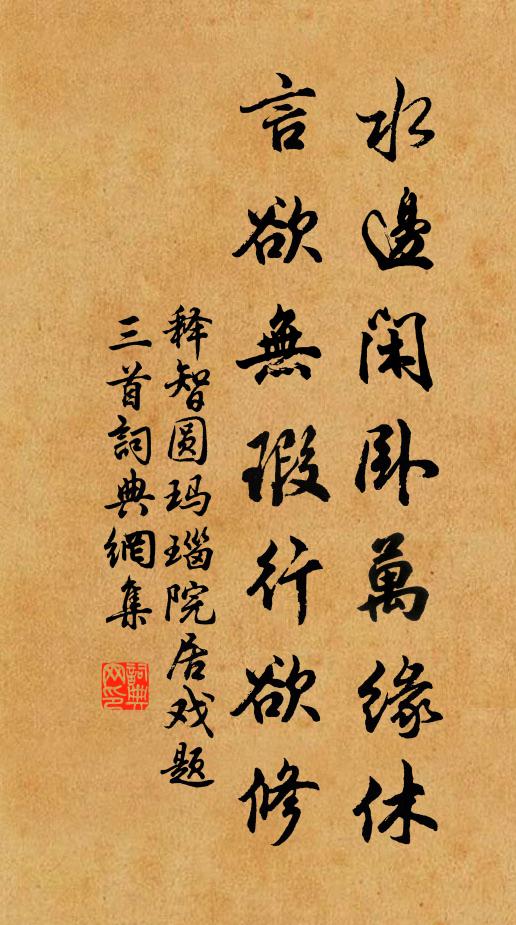 水邊閑卧萬緣休
言欲無瑕行欲修
释智圆玛瑙院居戏题
三首詞典網集
詞典
网印